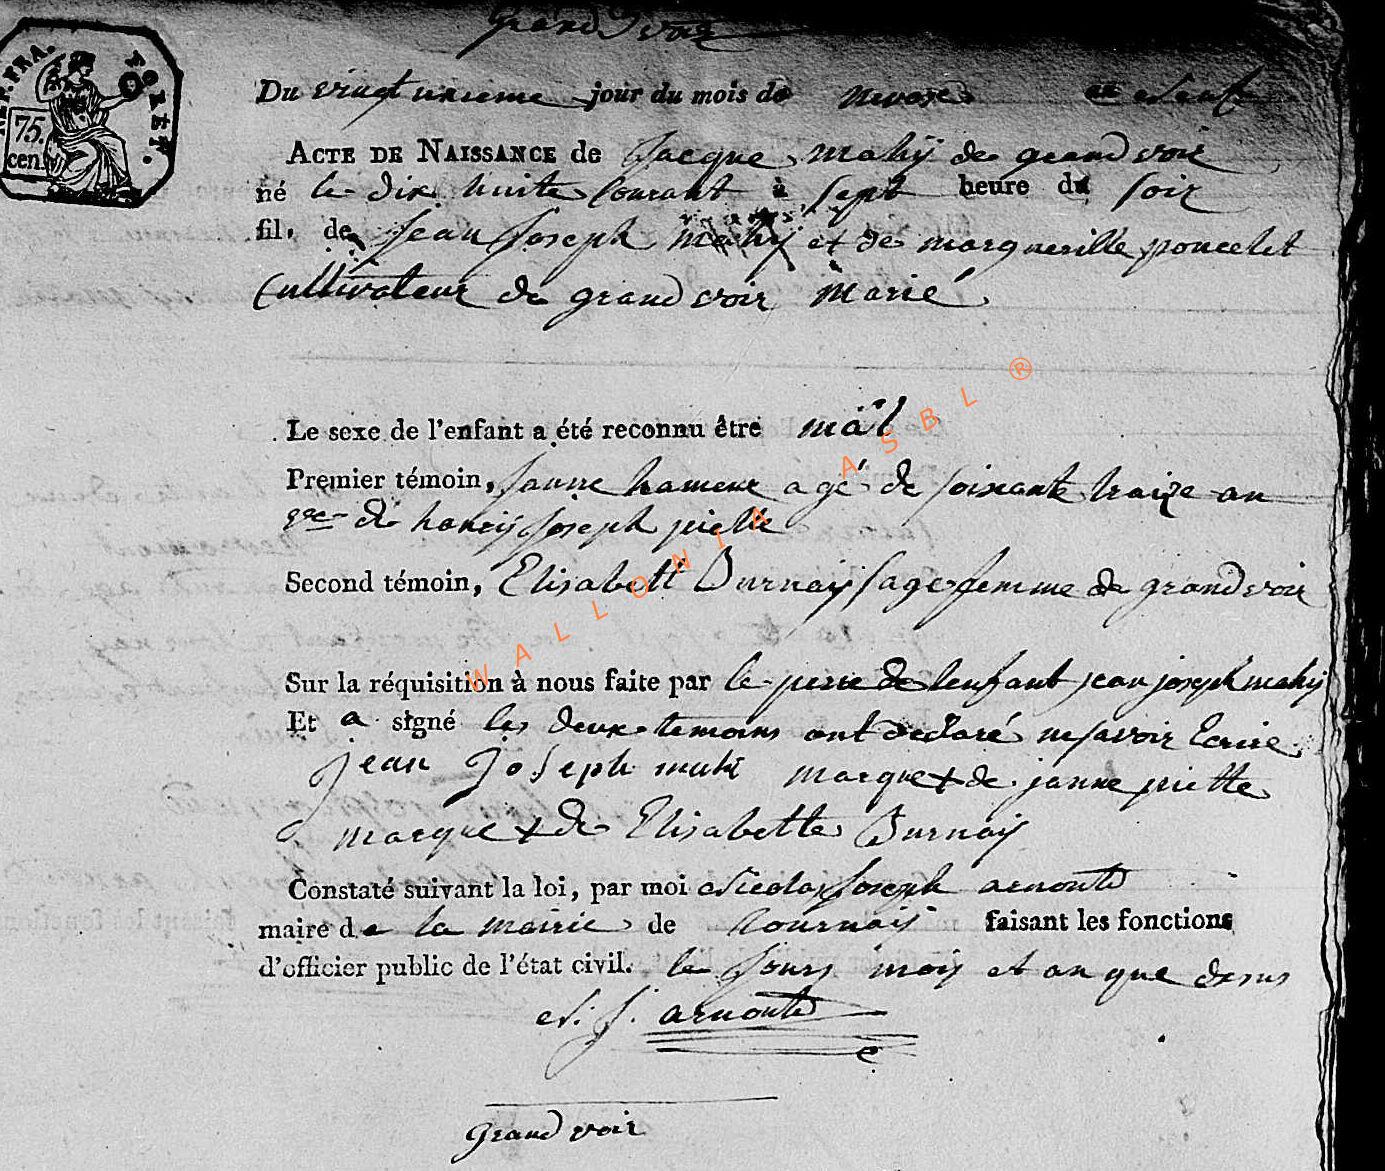 Grandvoir
REP. FRA. FORÊT.
75.
cen
Du vingt unieme jour du mois de nivose an neuf
ACTE DE NAISSANCE de Jacque mahÿ de grandvoir
né le dix huite Courant à sept heure du soir
fil. de jean Joseph mahÿ et de marguerille poncelet
Cultivateur de grandvoir marié
Le sexe de l'enfant a été reconnu être mâl
Premier témoin, janne hamene agé de soixante traize an
de joseph piette
Second témoin, Elisabett Burnaÿ sage femme de grandvoir
Sur la réquisition à nous faite par le perre de lenfant jean joseph mahÿ
Et a signé les deux temoins ont declaré ne savoir Ecrire
jean Joseph mahi marque + de janne piette
marque + de Elisabette Burnaÿ
Constaté suivant la loi, par moi Nicolas Joseph arnould
maire de la mairie de tournaÿ faisant les fonctions
d'officier public de l'état civil. le jours mois et an que desus
N. J. arnould
Grandvoir
WALLONIA ASBL ®